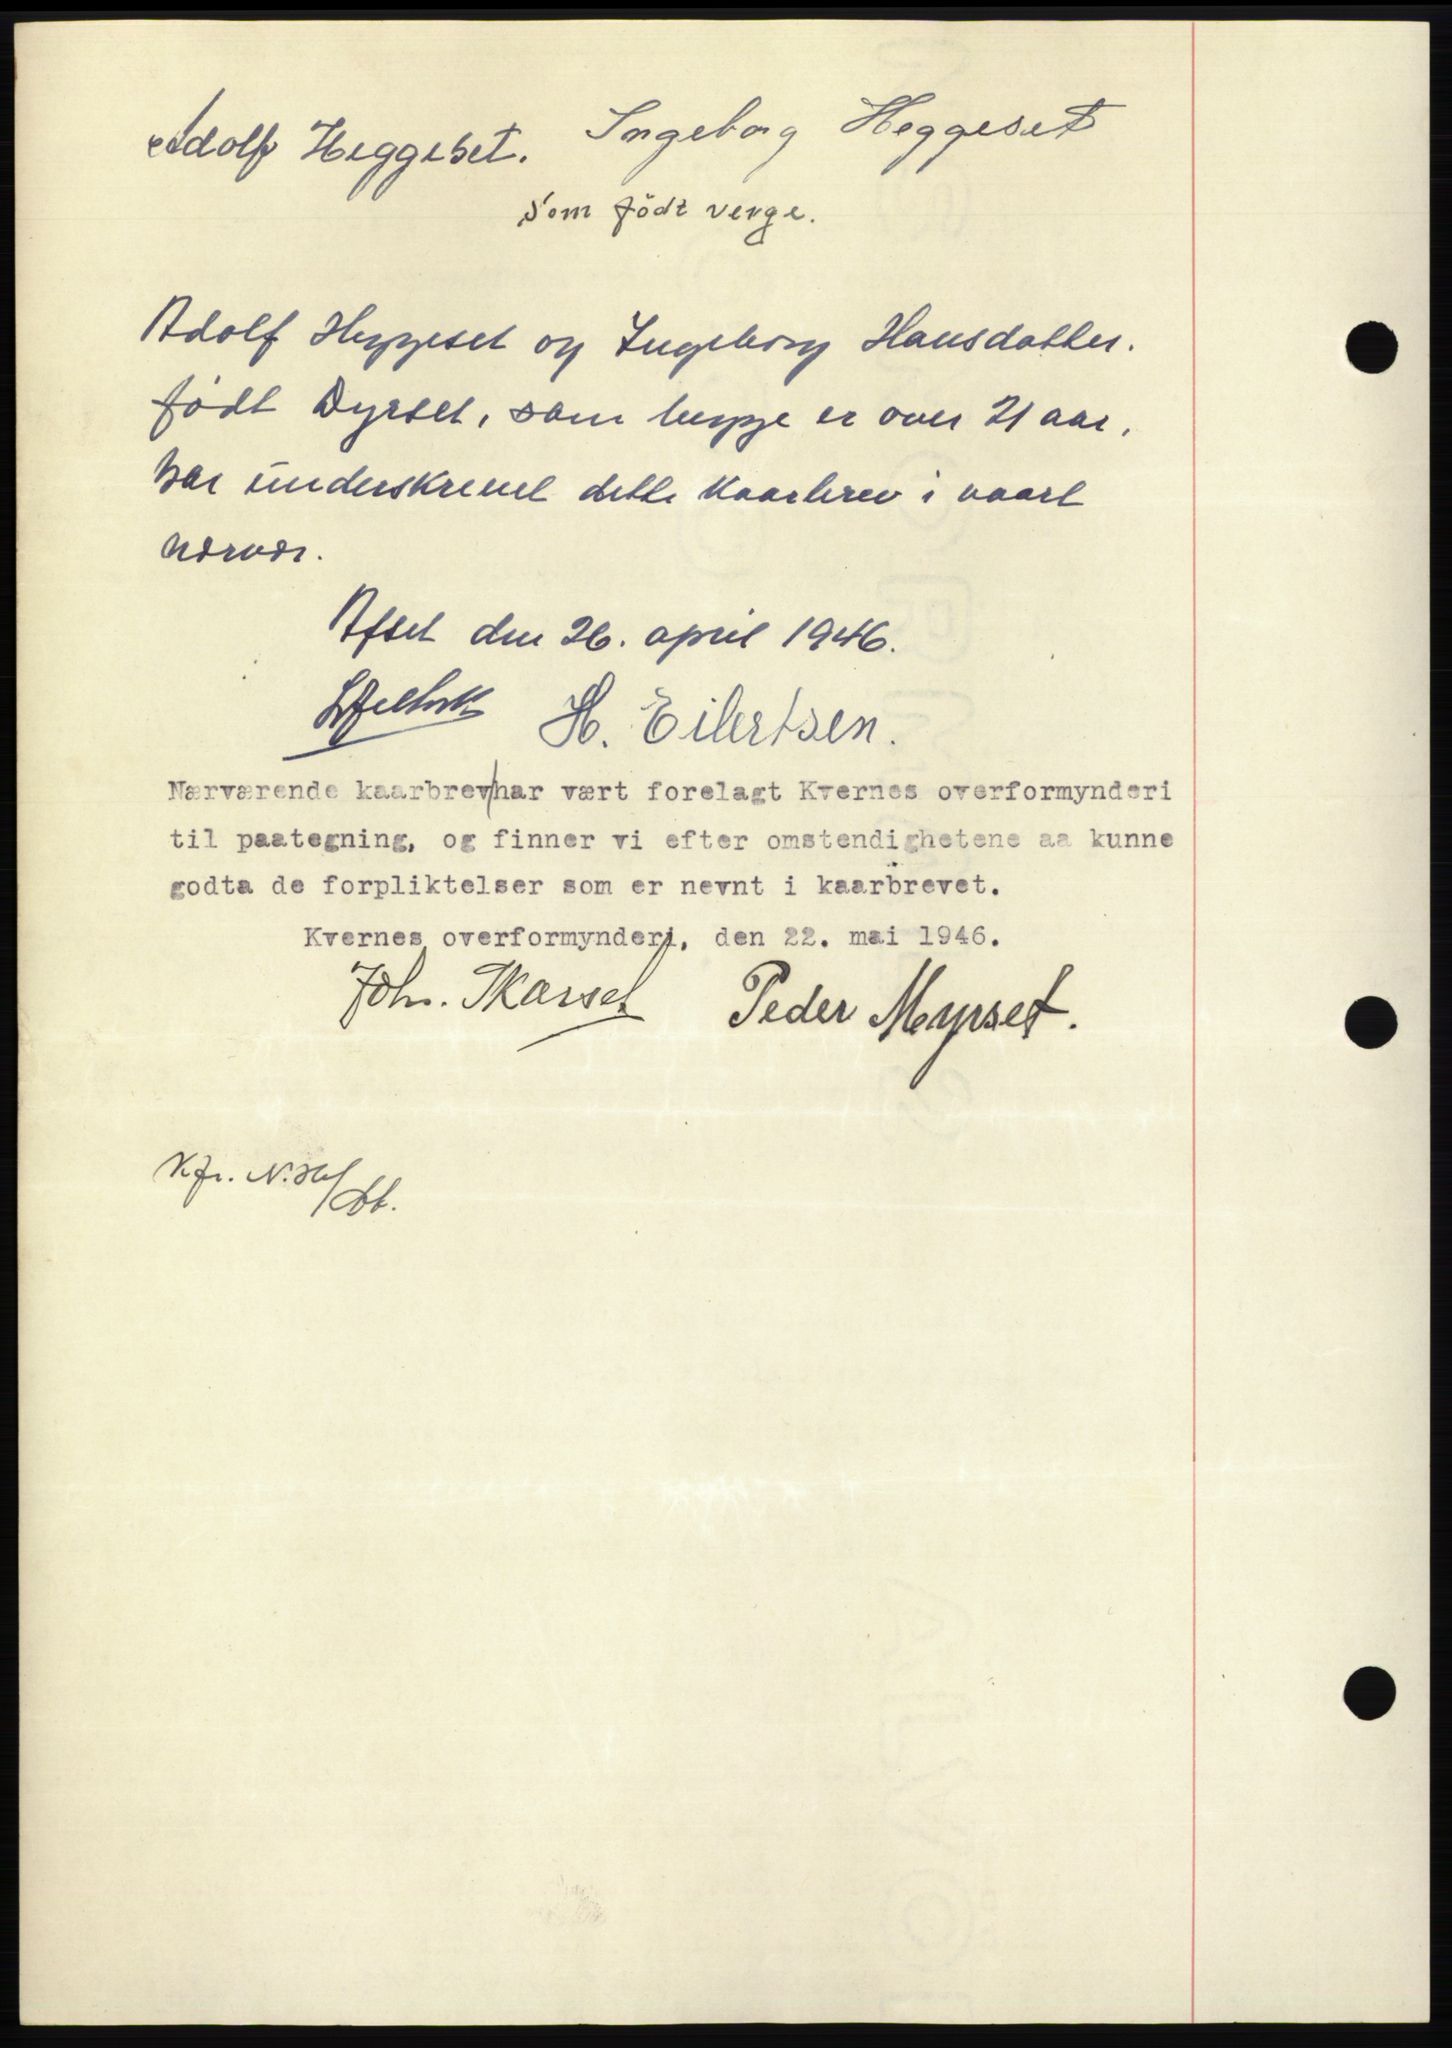 Adolf Heggeset. Ingeborg Heggeset
som födt verge.
Adolf Heggeset og Ingeborg Hansdatter.
födt Dyrset, som begge er over 21 aar,
har underskrevet dette kaarbrev i vaart
nærvær.
Afset den 26. april 1946.
H. Eilertsen.
Nærværende kaarbrev/har vært forelagt Kvernes overformynderi
til paategning, og finner vi efter omstendighetene aa kunne
godta de forpliktelser som er nevnt i kaarbrevet.
Kvernes overformynderi, den 22. mai 1946.
Joh. Skarset Peder Myrset.